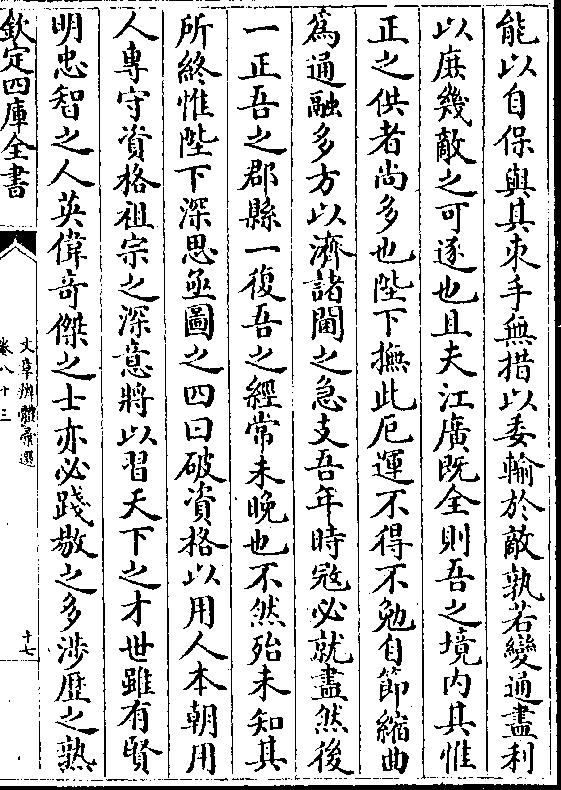 能以自保與其束手無措以委輸於敵孰若變通盡利
以庶幾敵之可逐也且夫江廣既全則吾之境内其惟
正之供者尚多也陛下撫此厄運不得不勉自節縮曲
爲通融多方以濟諸閫之急支吾年時冦必就盡然後
一正吾之郡縣一復吾之經常未晚也不然殆未知其
所終惟陛下深思亟圖之四曰破資格以用人本朝用
人專守資格祖宗之深意將以習天下之才世雖有賢
明忠智之人英偉竒傑之士亦必踐敭之多渉歴之熟
欽定四庫全書
文章辨體彚選
卷八十三
十七